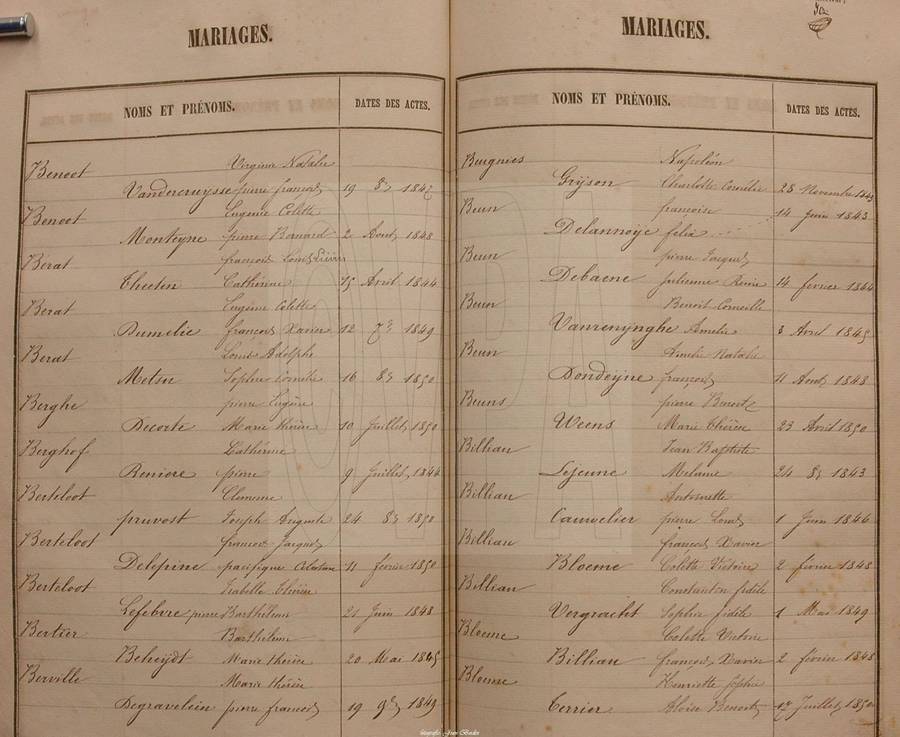 MARIAGES.
NOMS ET PRÉNOMS. DATES DES ACTES.
Benoot Virginie Natalie
Vandercruysse pierre francois 19 8bre 1842
Benoot Eugenie Colette
Monteyne pierre Bernard 2 Aout 1848
Berat francois Louis
Theeten Catherine 15 Avril 1844
Berat Eugénie Colette
Dumelie francois Xavier 12 7bre 1849
Berat Louis Adolphe
Metsu Sophie Cornelie 16 8bre 1850
Berghe pierre Eugène
Decorte Marie thérèse 10 Juillet 1850
Berghof Cathérine
Reniere pierre 9 Juillet 1844
Berteloot Clemence
pruvost Joseph Auguste 24 8bre 1850
Berteloot francois Jacques
Delepine pacifique 11 février 1850
Berteloot Isabelle
Lefebvre pierre Barthélemi 21 Juin 1848
Bertier Barthélemi
Beheydt Marie thérèse 20 Mai 1845
Berville Marie thérèse
Degravelein pierre francois 19 9bre 1849
MARIAGES.
NOMS ET PRÉNOMS. DATES DES ACTES.
Beugnies Napoléon
Gryson Charlotte Cornélie 28 Novembre 1849
Beun francoise 14 Juin 1843
Delannoye felix
Beun pierre Jacques
Debaene Julienne Reine 14 fevrier 1844
Beun Benoit Corneille
Vanrenynghe Amelie 3 Avril 1845
Beun Amelie Natalie
Dondeyne francois 11 Aout 1848
Beuns pierre Benoit
Weens Marie thérèse 23 Avril 1850
Billiau Jean Baptiste
Lejeune Melanie 24 8bre 1843
Billiau Antoinette
Cauwelier pierre Louis 1 Juin 1846
Billiau francois Xavier
Bloeme Colette Victoire 2 février 1848
Billiau Constantin fidèle
Vergracht Sophie fidèle 1 Mai 1849
Bloeme Colette Victoire
Billiau francois Xavier 2 février 1848
Bloeme Henriette Sophie
Terrier Benoit 17 Juillet 1850